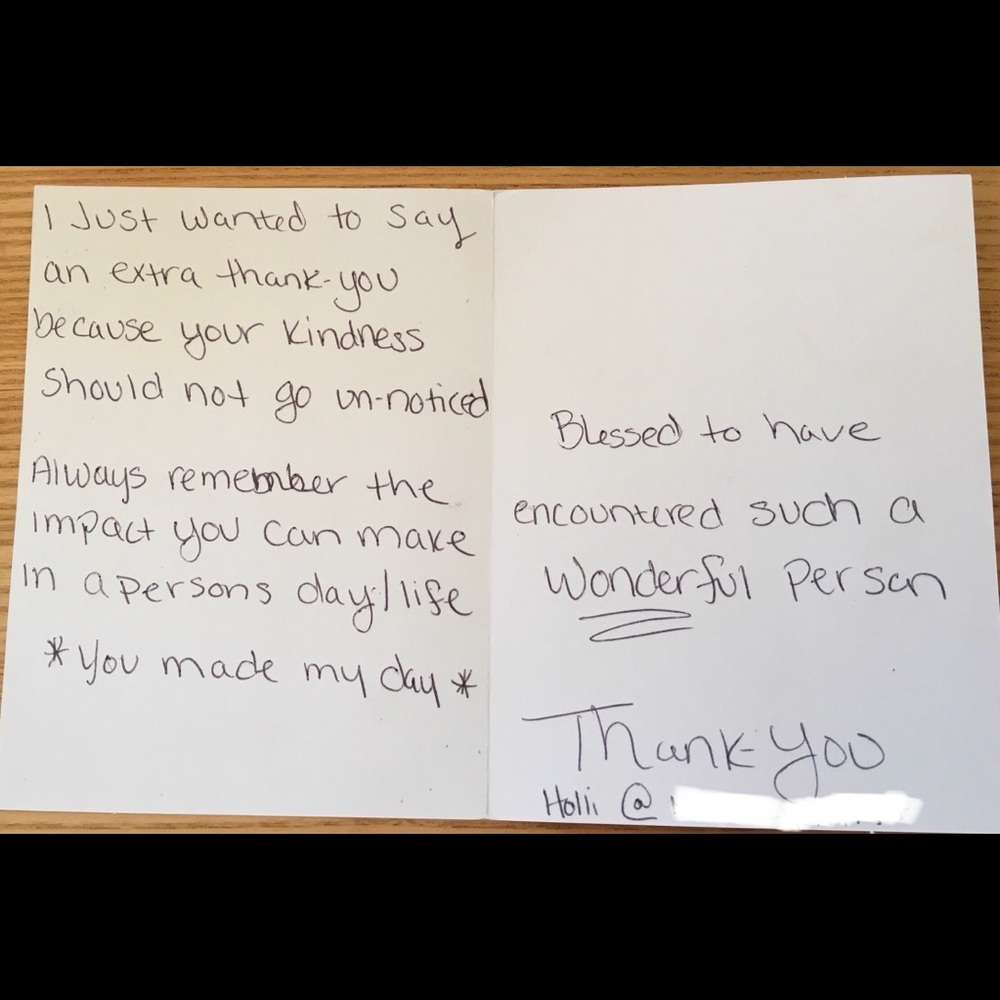 I Just wanted to say
an extra thank-you
because your kindness
should not go un-noticed
Always remember the
impact you can make
in a persons day/life
*You made my day*
Blessed to have
encountered such a
wonderful person
Thank-you
Holli @